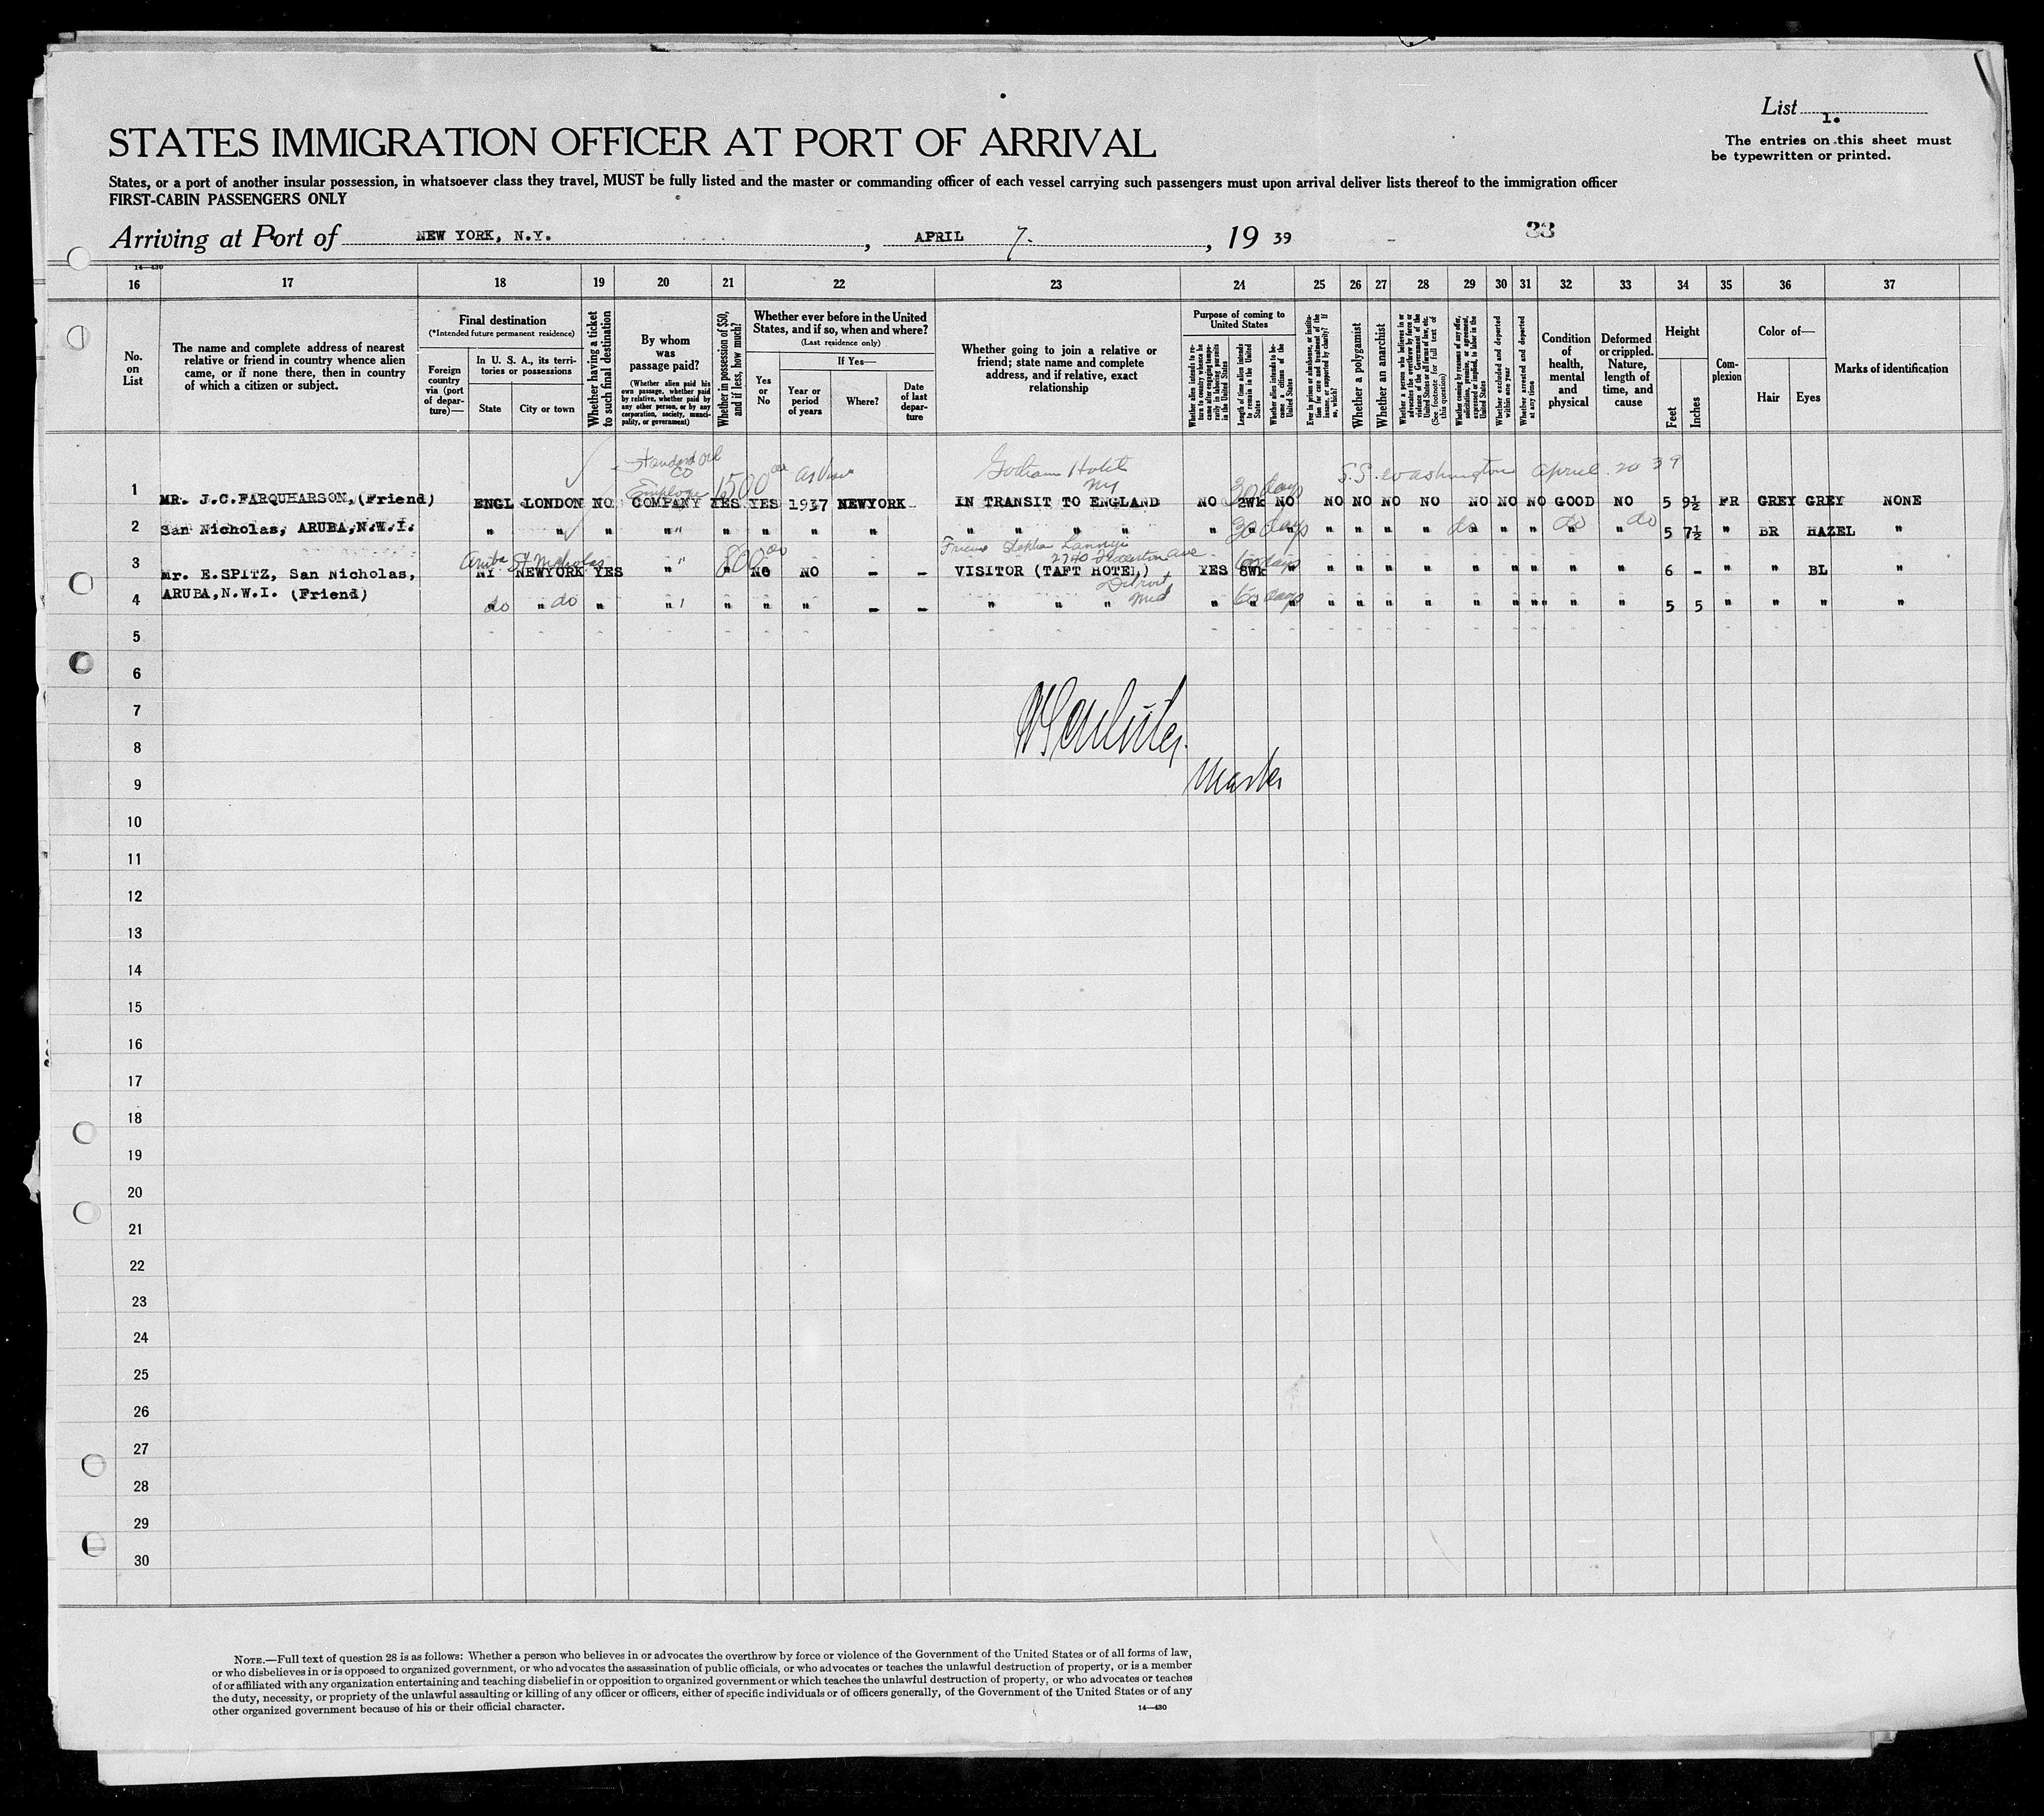 List 1.
The entries on this sheet must
be typewritten or printed.
STATES IMMIGRATION OFFICER AT PORT OF ARRIVAL
States, or a port of another insular possession, in whatsoever class they travel, MUST be fully listed and the master or commanding officer of each vessel carrying such passengers must upon arrival deliver lists thereof to the immigration officer
FIRST-CABIN PASSENGERS ONLY
Arriving at Port of NEW YORK, N.Y. , APRIL 7. , 19 39
33
14—430
16 17 18 19 20 21 22 23 24 25 26 27 28 29 30 31 32 33 34 35 36 37
No. on List
The name and complete address of nearest relative or friend in country whence alien came, or if none there, then in country of which a citizen or subject.
Final destination
(*Intended future permanent residence)
Foreign country via (port of departure)—
In U. S. A., its territories or possessions
State
City or town
Whether having a ticket to such final destination
By whom was passage paid?
(Whether alien paid his own passage, whether paid by relative, whether paid by any other person, or by any corporation, society, municipality, or government)
Whether in possession of $50, and if less, how much?
Whether ever before in the United States, and if so, when and where?
(Last residence only)
If Yes—
Yes or No
Year or period of years
Where?
Date of last departure
Whether going to join a relative or friend; state name and complete address, and if relative, exact relationship
Purpose of coming to United States
Whether alien intends to return to country whence he came after engaging temporarily in laboring pursuits in the United States
Length of time alien intends to remain in the United States
Whether alien intends to become a citizen of the United States
Ever in prison or almshouse, or institution for care and treatment of the insane, or supported by charity? If so, which?
Whether a polygamist
Whether an anarchist
Whether a person who believes in or advocates the overthrow by force or violence of the Government of the United States or all forms of law, etc. (See footnote for full text of this question)
Whether coming by reason of any offer, solicitation, promise, or agreement, expressed or implied, to labor in the United States
Whether excluded and deported within one year
Whether arrested and deported at any time
Condition of health, mental and physical
Deformed or crippled. Nature, length of time, and cause
Height
Feet
Inches
Complexion
Color of—
Hair
Eyes
Marks of identification
Standard Oil Co Employe 1500 00 Gotham Hotel NY 30 days S.S. Washington April 20 39
1 MR. J.C.FARQUHARSON,(Friend) ENGL LONDON NO COMPANY YES YES 1937 NEWYORK IN TRANSIT TO ENGLAND NO 2Wk NO NO NO NO NO NO NO NO GOOD NO 5 9½ FR GREY GREY NONE
2 San Nicholas, ARUBA,N.W.I. " " " " " " " " " " " " " 30 days " " " " " do " " " do " do 5 7½ " BR HAZEL "
Aruba St Nicholas 800 00 Friend Stephen 2740 ave Detroit Mich 60 days
3 Mr. E.SPITZ, San Nicholas, NY NEWYORK YES " " NO NO – – VISITOR (TAFT HOTEL) YES 8Wk " " " " " " " " " " 6 – " " BL "
4 ARUBA,N.W.I. (Friend) do " do " " " " " – – " " " " 60 days " " " " " " " " " " 5 5 " " " "
5
6
7
8
Master
9
10
11
12
13
14
15
16
17
18
19
20
21
22
23
24
25
26
27
28
29
30
NOTE.—Full text of question 28 is as follows: Whether a person who believes in or advocates the overthrow by force or violence of the Government of the United States or of all forms of law,
or who disbelieves in or is opposed to organized government, or who advocates the assassination of public officials, or who advocates or teaches the unlawful destruction of property, or is a member
of or affiliated with any organization entertaining and teaching disbelief in or opposition to organized government or which teaches the unlawful destruction of property, or who advocates or teaches
the duty, necessity, or propriety of the unlawful assaulting or killing of any officer or officers, either of specific individuals or of officers generally, of the Government of the United States or of any
other organized government because of his or their official character.
14—430